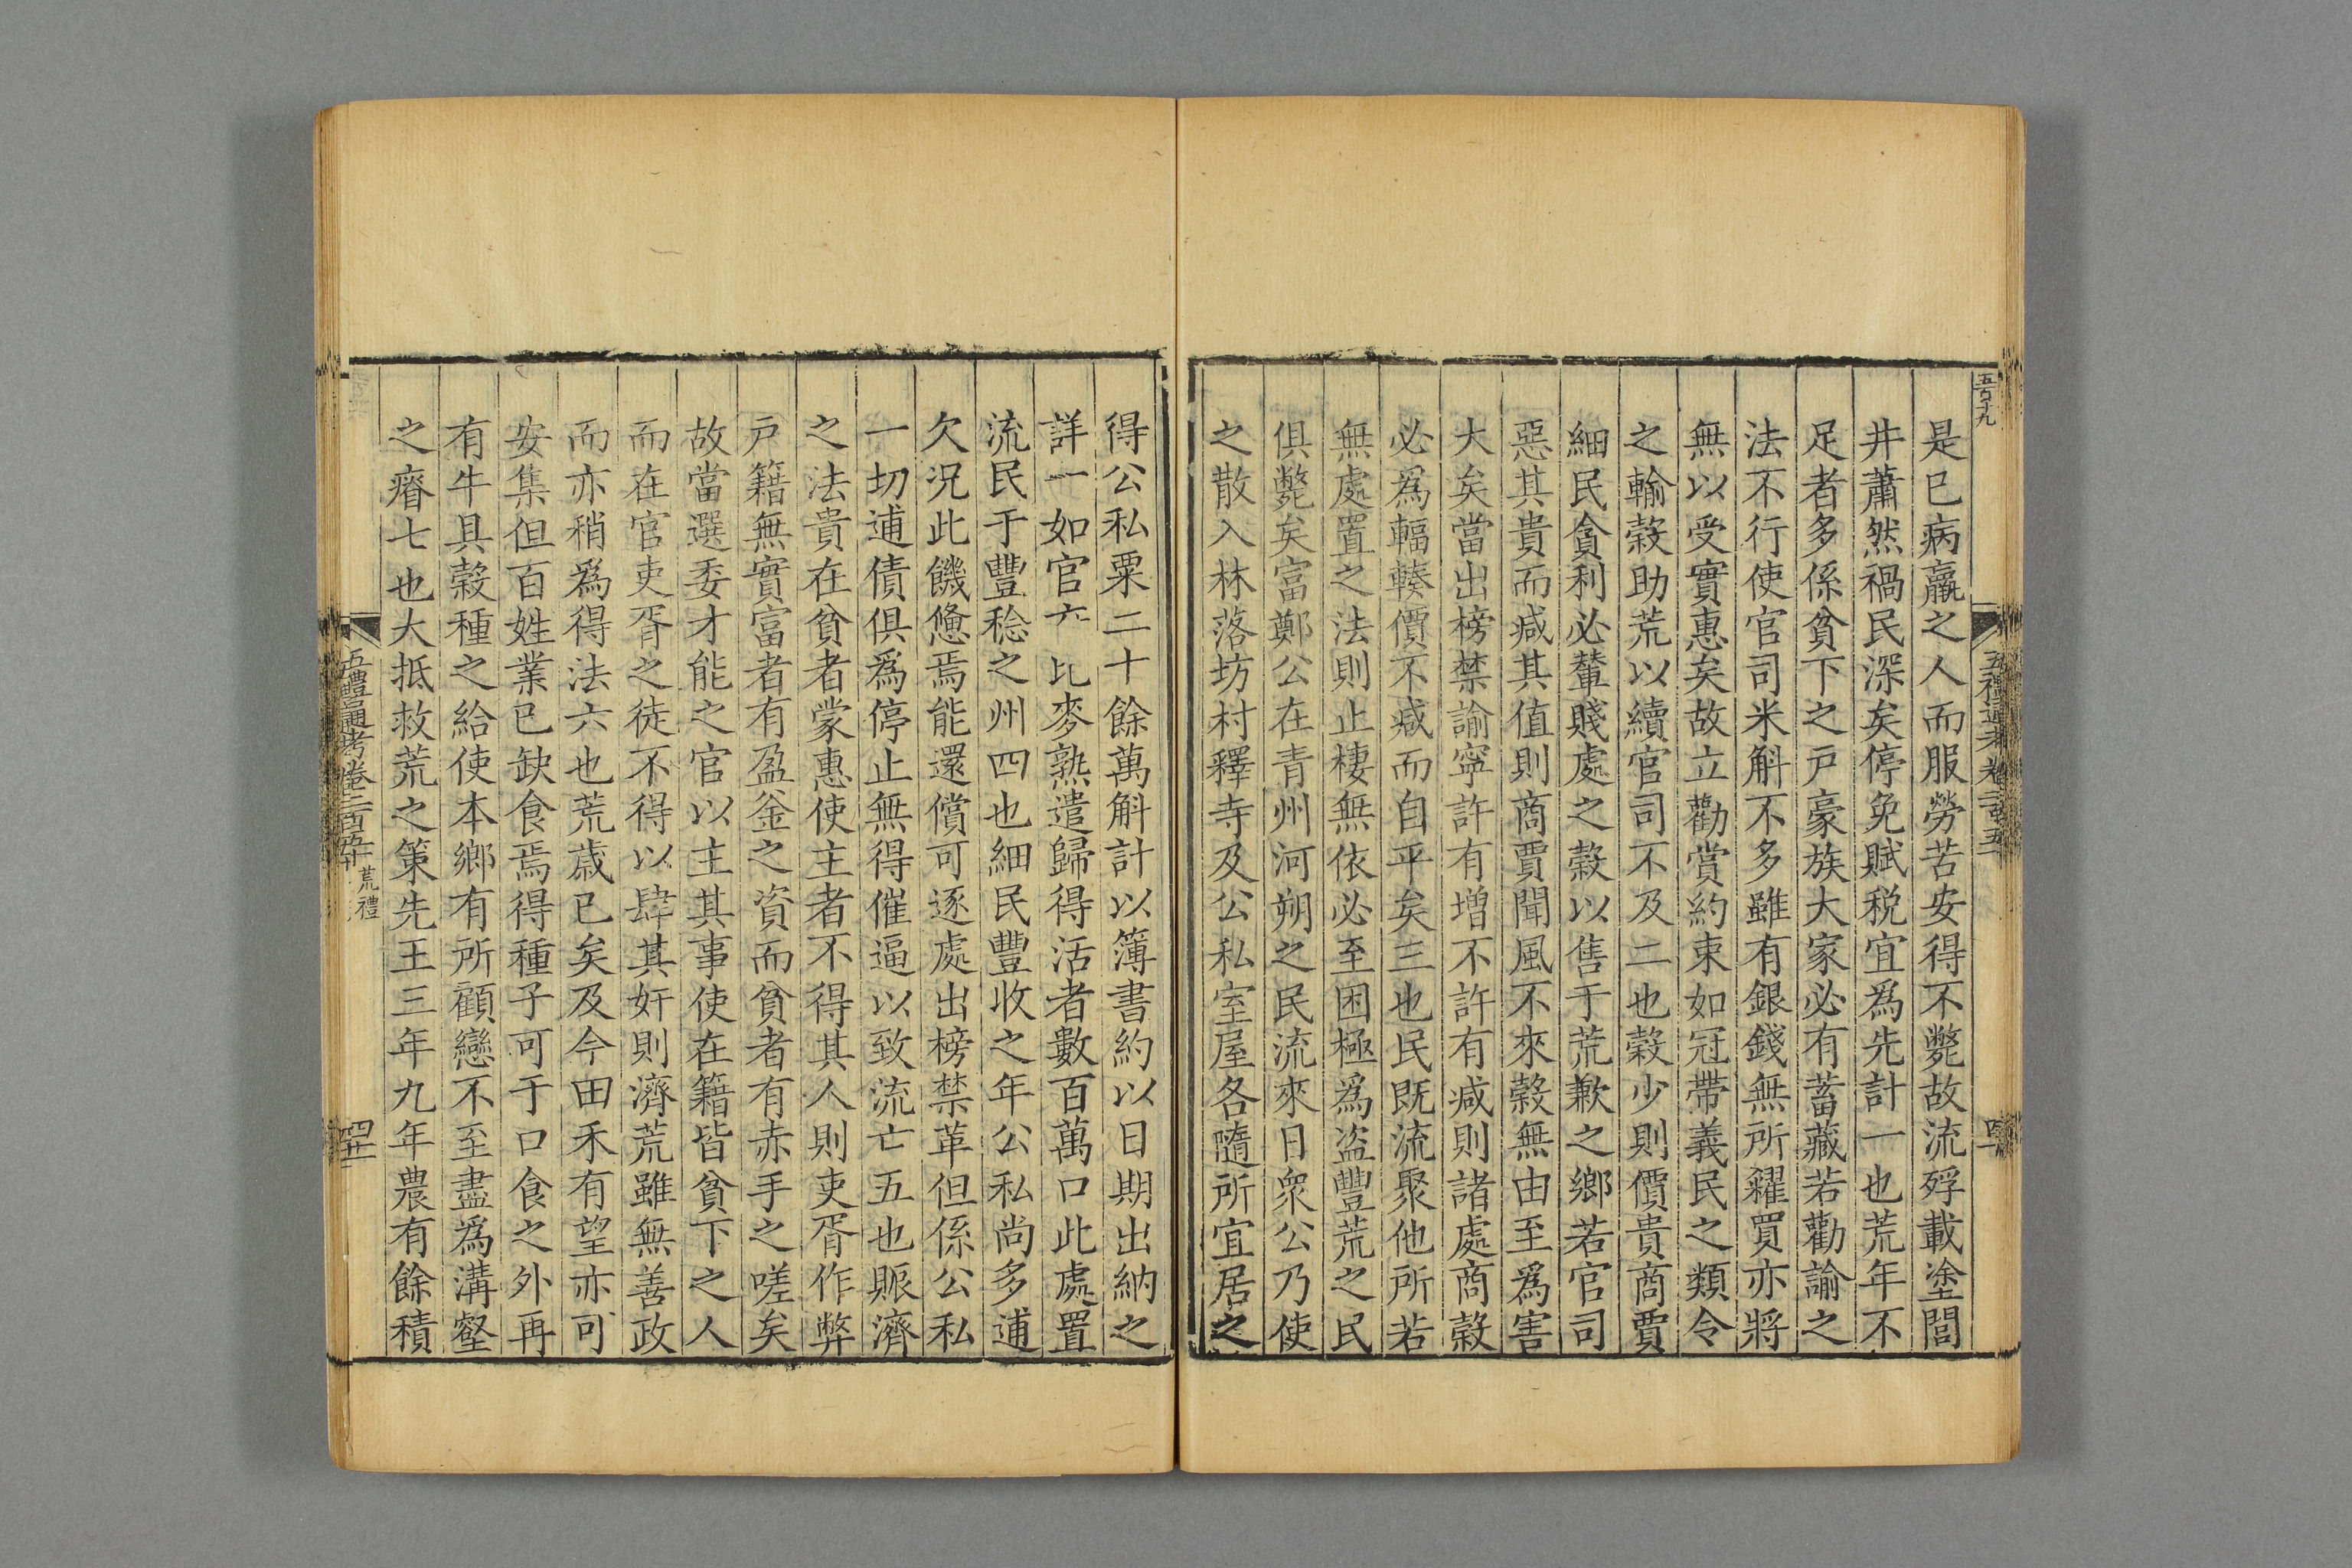 五百十九
是已病羸之人而服勞苦安得不斃故流殍載塗閭
井蕭然禍民深矣停免賦税宜爲先計一也荒年不
足者多係貧下之戸豪族大家必有蓄藏若勸諭之
法不行使官司米斛不多雖有銀錢無所糴買亦將
無以受實惠矣故立勸賞約束如冠帶義民之類令
之輸穀助荒以續官司不及二也穀少則價貴商賈
細民貪利必輦賤處之穀以售于荒歉之鄉若官司
惡其貴而减其值則商賈聞風不來穀無由至爲害
大矣當出榜禁諭寧許有增不許有减則諸處商穀
必爲輻輳價不减而自平矣三也民既流聚他所若
無處置之法則止棲無依必至困極爲盗豐荒之民
俱斃矣富鄭公在青州河朔之民流來日衆公乃使
之散入林落坊村釋寺及公私室屋各隨所宜居之
得公私粟二十餘萬斛計以簿書約以日期出納之
詳一如官 比麥熟遣歸得活者數百萬口此處置
流民于豐稔之州四也細民豐收之年公私尚多逋
欠况此饑憊焉能還償可逐處出榜禁革但係公私
一切逋債俱爲停止無得催逼以致流亡五也賑濟
之法貴在貧者蒙惠使主者不得其人則吏胥作弊
戸籍無實富者有盈釜之資而貧者有赤手之嗟矣
故當選委才能之官以主其事使在籍皆貧下之人
而在官吏胥之徒不得以肆其奸則濟荒雖無善政
而亦稍爲得法六也荒歲已矣及今田禾有望亦可
安集但百姓業已缺食焉得種子可于口食之外再
有牛具穀種之給使本鄉有所顧戀不至盡爲溝壑
之瘠七也大抵救荒之策先王三年九年農有餘積
五禮通考卷二百五十 荒禮